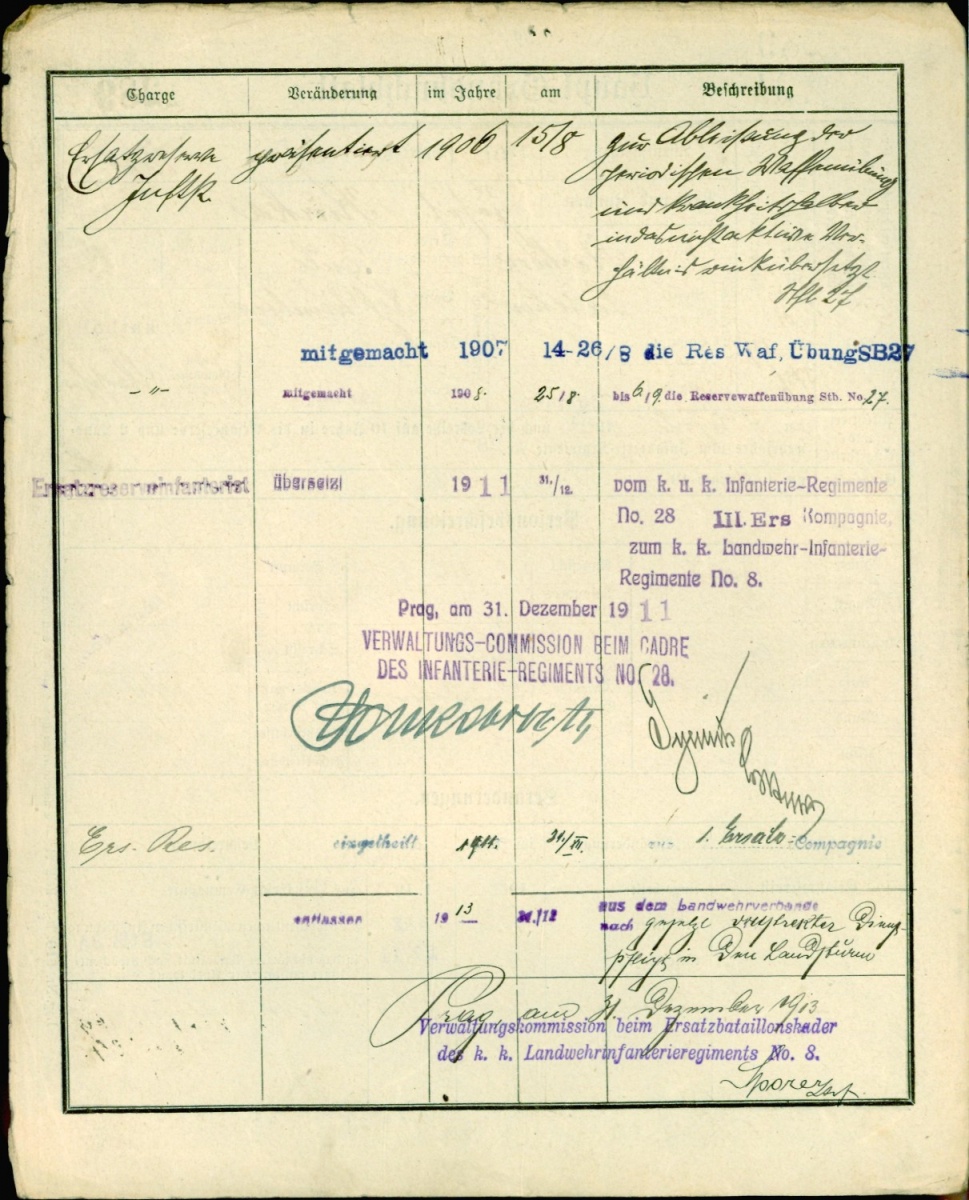 Charge Veränderung im Jahre am Beschreibung
Ersatzreserve präsentiert 1906 15/8 zur Ableistung der
Inftst. periodischen Waffenübung
und krankheitshalber
in das nichtaktive Ver-
hältnis rückübersetzt
27
mitgemacht 1907 14-26/8 die Res Waf, Übung SB27
- " - mitgemacht 1908. 25/8. bis 6/9. die Reservewaffenübung Stb. No. 27.
Ersatzreserveinfanterist übersetzt 1911 31./12. vom k. u. k. Infanterie-Regimente
No. 28 III. Ers Kompagnie,
zum k. k. Landwehr-Infanterie-
Regimente No. 8.
Prag, am 31. Dezember 1911
VERWALTUNGS-COMMISSION BEIM CADRE
DES INFANTERIE-REGIMENTS NO. 28.
Ers. Res. eingetheilt 1911. 31./XII. zur 1. Ersatz-Compagnie
entlassen 1913 31./12 aus dem Landwehrverbande
nach gesetzl. vollstreckter Dienst-
pflicht in den Landsturm
Prag, am 31. Dezember 1913
Verwaltungskommission beim Ersatzbataillonskader
des k. k. Landwehrinfanterieregiments No. 8.
Sporer